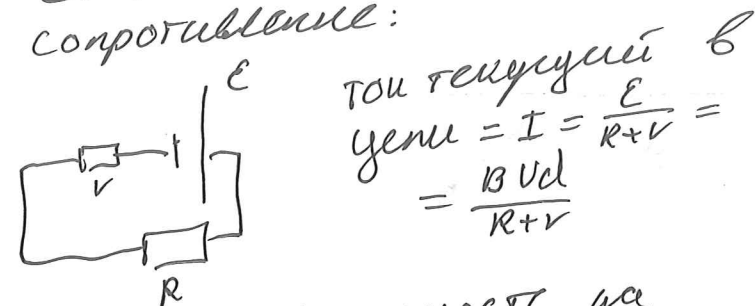 сопротивление:
ε
ток текущий в
цепи = I = ε/(R+r) =
= BUd/(R+r)
r
R